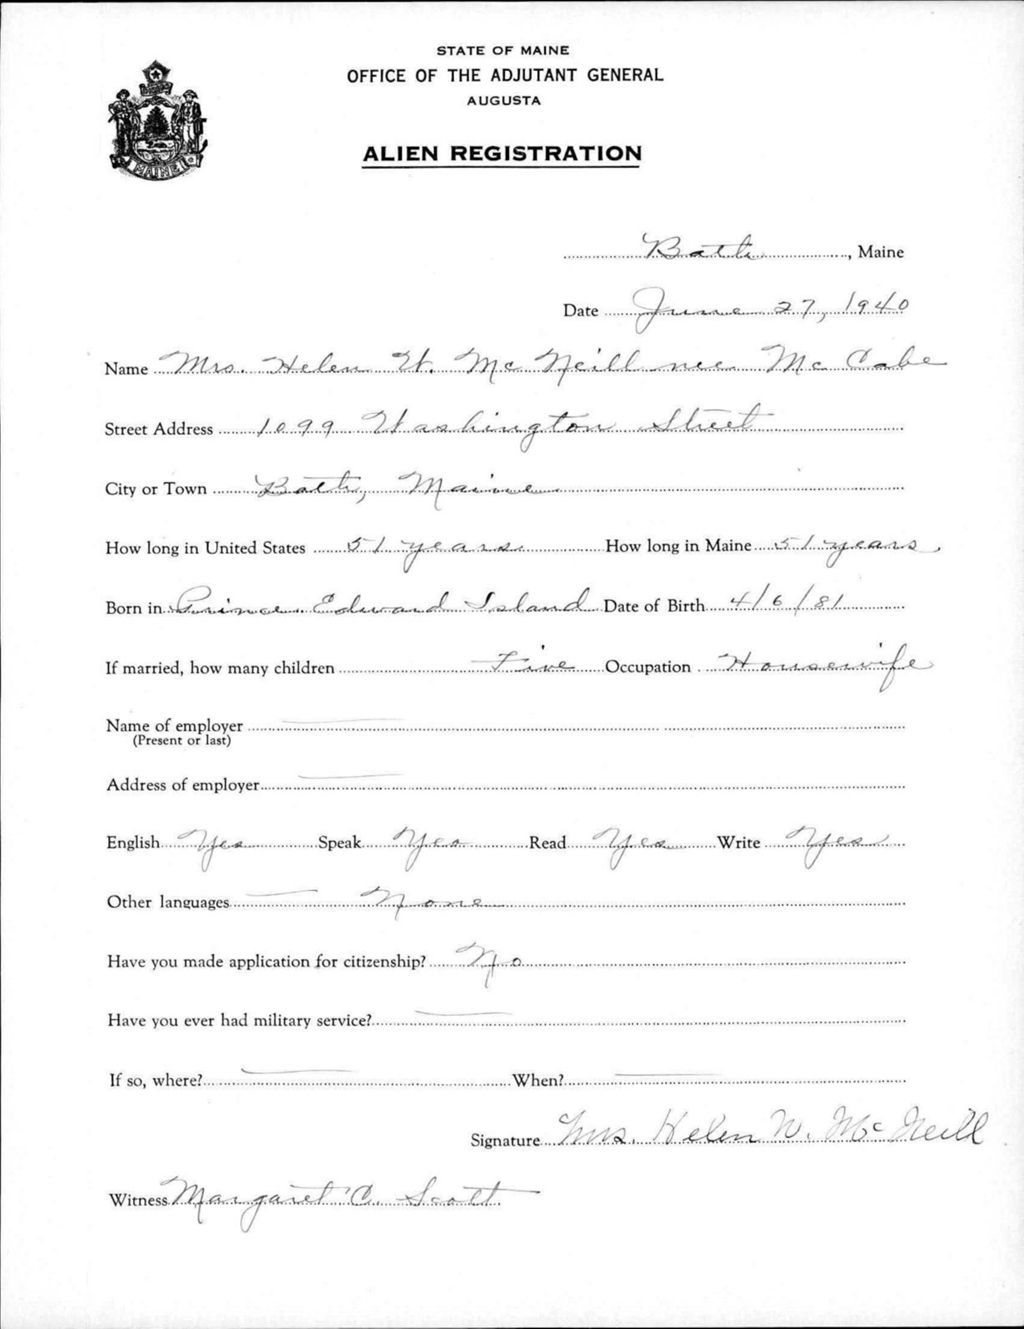 STATE OF MAINE
OFFICE OF THE ADJUTANT GENERAL
AUGUSTA
ALIEN REGISTRATION
MAINE
Bath, Maine
Date June 27, 1940
Name Mrs. Helen W. Mc Neill nee Mc Cabe
Street Address 1099 Washington Street
City or Town Bath, Maine
How long in United States 51 years How long in Maine 51 years.
Born in Prince Edward Island Date of Birth 4/6/81
If married, how many children Five Occupation Housewife
Name of employer
(Present or last)
Address of employer
English Yes Speak Yes Read Yes Write Yes
Other languages None
Have you made application for citizenship? No
Have you ever had military service?
If so, where? When?
Signature Mrs. Helen W. Mc Neill
Witness Margaret C. Scott